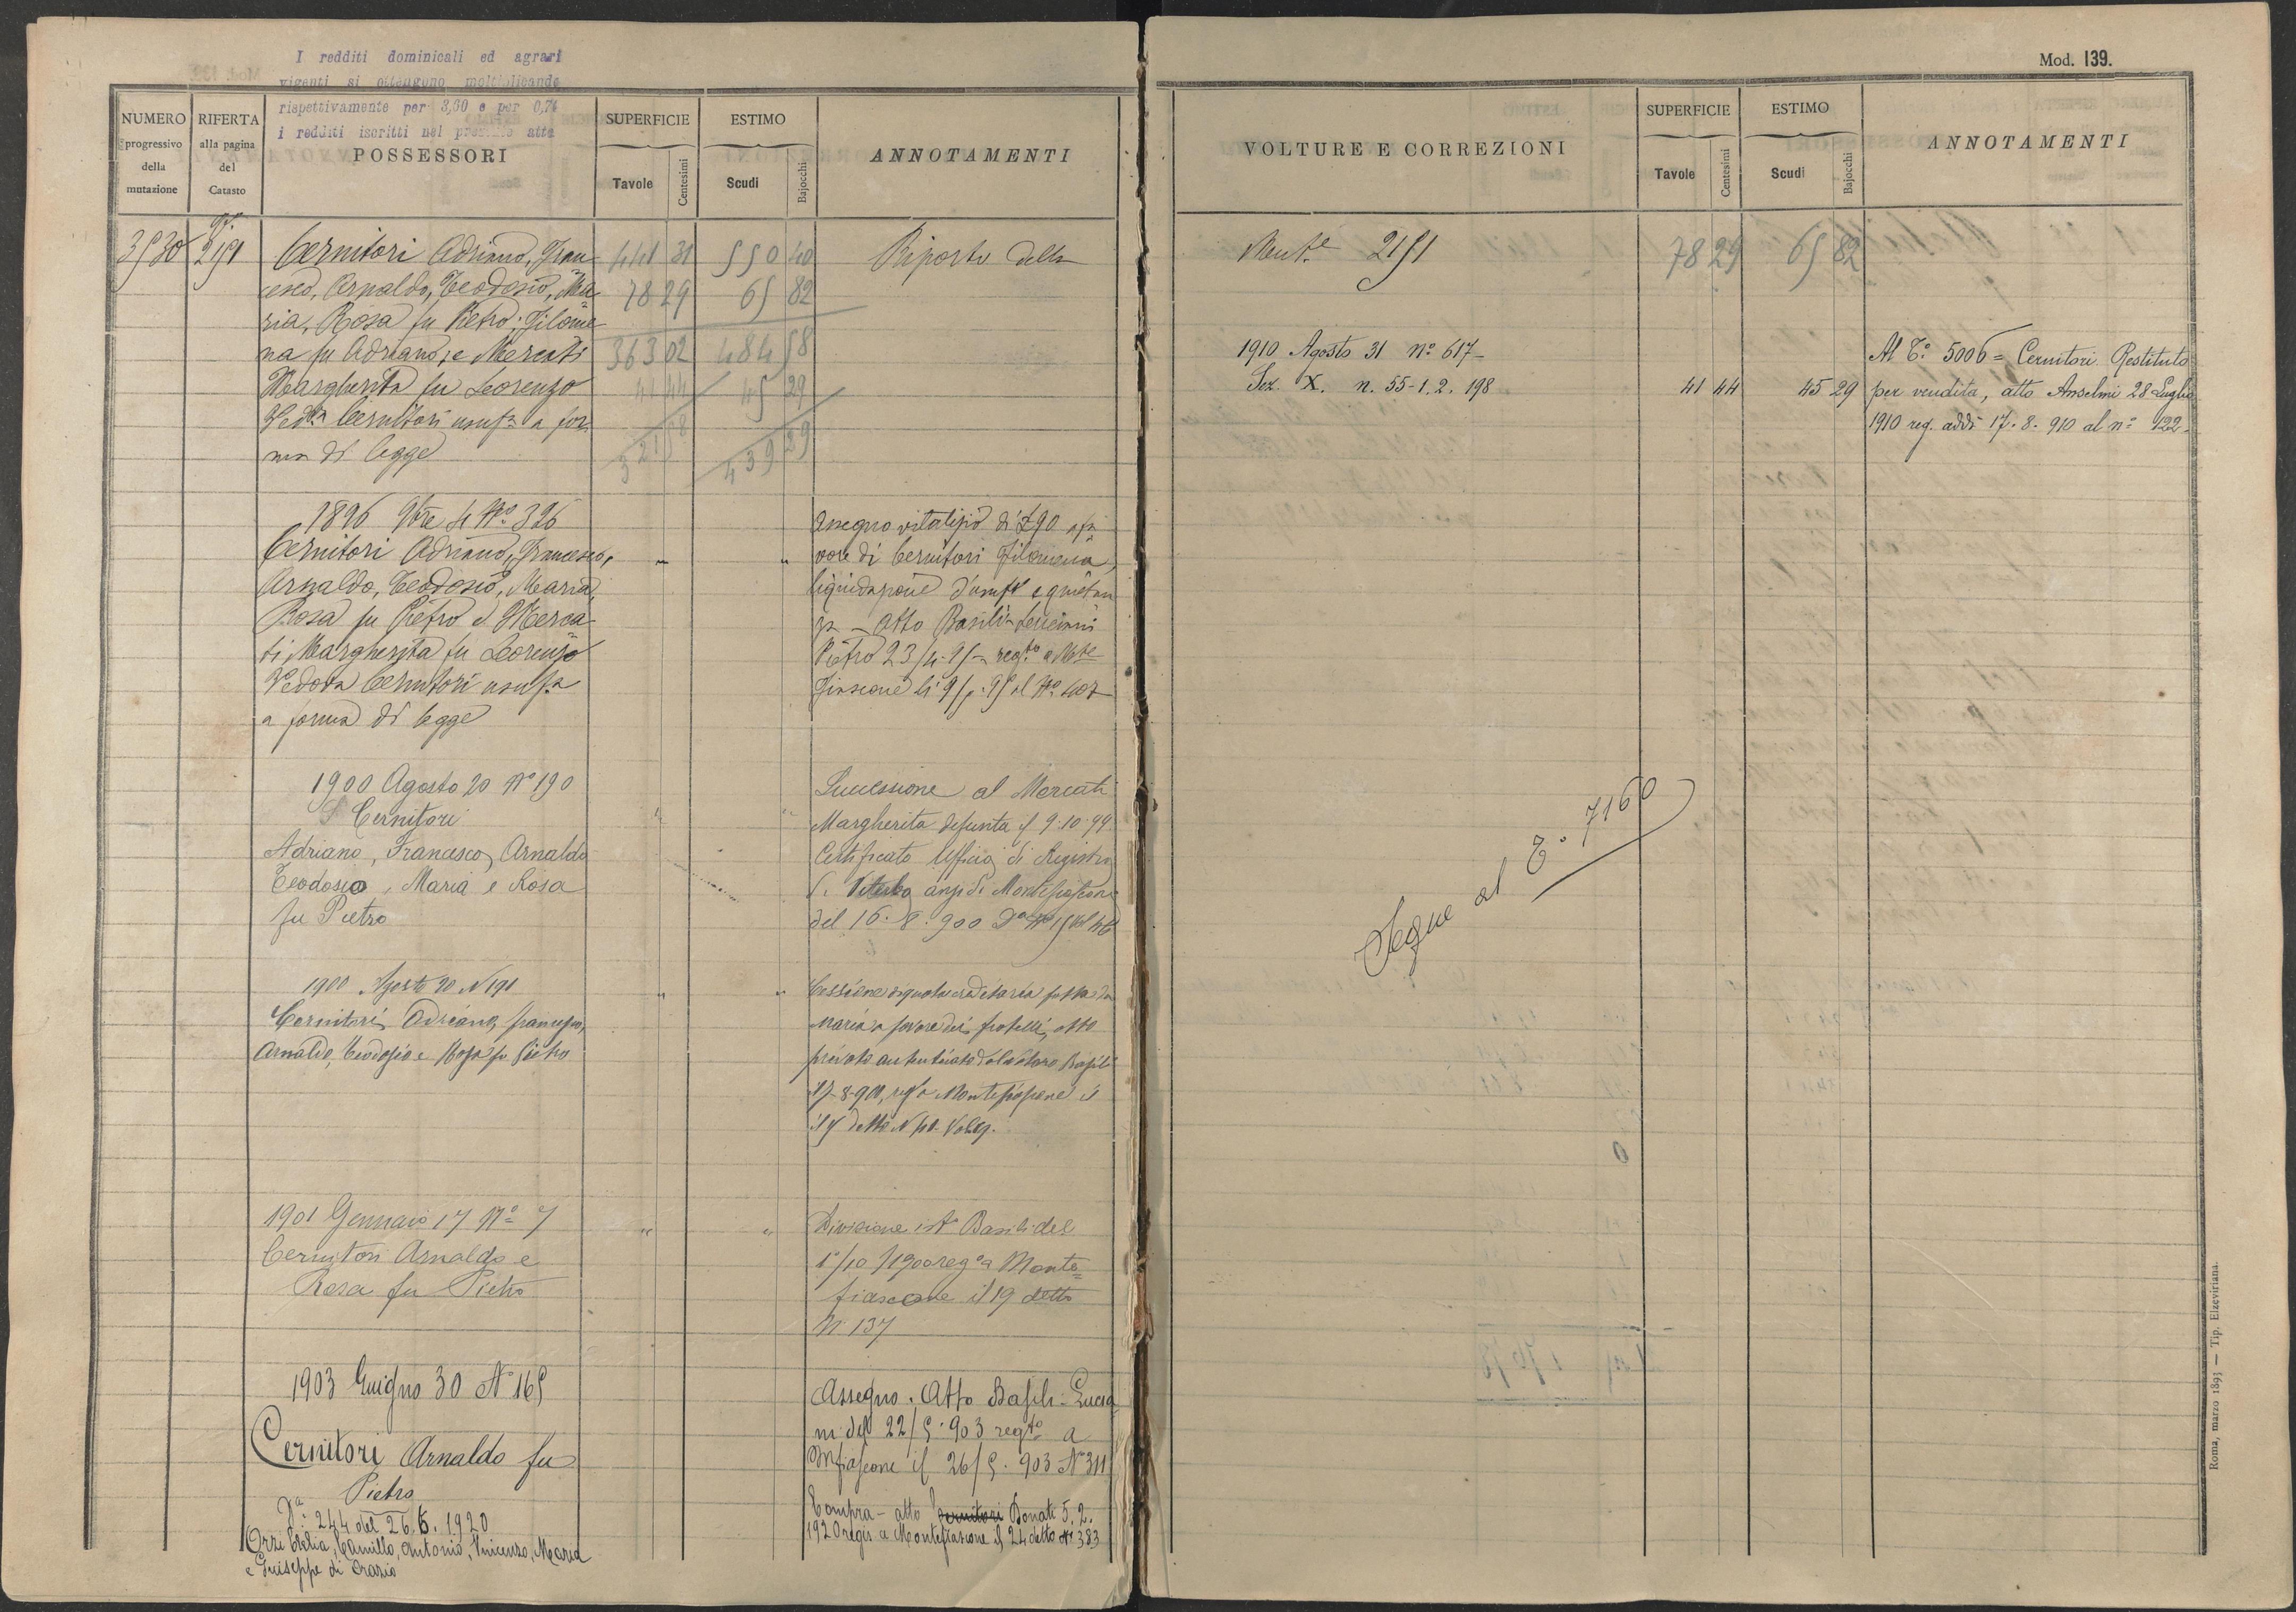 I redditi dominicali ed agrari
vigenti si ottengono moltiplicando
rispettivamente per 3,60 e per 0,74
i redditi iscritti nel presente atto
NUMERO
progressivo
della
mutazione
RIFERTA
alla pagina
del
Catasto
POSSESSORI
SUPERFICIE
Tavole
Centesimi
ESTIMO
Scudi
Bajocchi
ANNOTAMENTI
3530 2151
Cernitori Adriano, Fran
cesco, Arnaldo, Teodosio, Ma
ria, Rosa fu Pietro; Filome
na fu Adriano, e Mercati
Margherita fu Lorenzo
Ved.a Cernitori usuf.a a for
ma di legge
441 31 550 40
78 29 65 82
363 02 484 58
41 44 45 29
321 58 439 29
Riporto della
1896 9bre 4 N.o 326
Cernitori Adriano, Francesco,
Arnaldo, Teodosio, Maria,
Rosa fu Pietro e Merca
ti Margherita fu Lorenzo
Vedova Cernitori usuf.a
a forma di legge
" "
Assegno vitalizio di £ 90 a fa
vore di Cernitori Filomena,
liquidazione d'usuf.o e quietan
za - Atto Basili
Pietro 23/4-95 reg.to a Mte
fiascone li 9/5.95 al N.o 407
1900 Agosto 20 N.o 190
Cernitori
Adriano, Francesco, Arnaldo
Teodosio, Maria e Rosa
fu Pietro
" "
Successione al Mercati
Margherita defunta il 9.10.99
Certificato Ufficio di Registro
di Viterbo anzi di Montefiascone
del 16.8.900
1900 Agosto 20 N 191
Cernitori Adriano, Francesco,
Arnaldo, Teodosio e Rosa fu Pietro
" "
Cessione di quota ereditaria fatta da
Maria a favore dei fratelli, atto
privato autenticato dal Notaro Basili
17-8-900, reg.o a Montefiascone il
17 detto
1901 Gennaio 17 N.o 7
Cernitori Arnaldo e
Rosa fu Pietro
" "
Divisione ist.o Basili del
1°/10/1900 reg.o a Monte=
fiascone il 19 detto
N. 137
1903 Giugno 30 N.o 165
Cernitori Arnaldo fu
Pietro
Assegno. Atto Basili-Lucia
ni del 22/5.903 reg.to a
Mfiascone il 26/5.903 N.o 311
D.a 244 del 26.6.1920
Orzi Clelia, Camillo, Antonio, Vincenzo, Maria
e Giuseppe di Orazio
Compra - atto Cernitori Donati 5.2.
1920 regis. a Montefiascone il 24 detto N. 383
Mod. 139.
VOLTURE E CORREZIONI
SUPERFICIE
Tavole
Centesimi
ESTIMO
Scudi
Bajocchi
ANNOTAMENTI
Mut.e 2151 78 29 65 82
1910 Agosto 31 N.o 617-
Sez. X. n. 55-1.2. 198 41 44 45 29
Al T.o 5006= Cernitori Restituto
per vendita, atto Anselmi 28 Luglio
1910 reg. addì 17.8.910 al n.o 122.
Segue al T.o 7160
0
Roma, marzo 1895 — Tip. Elzeviriana.